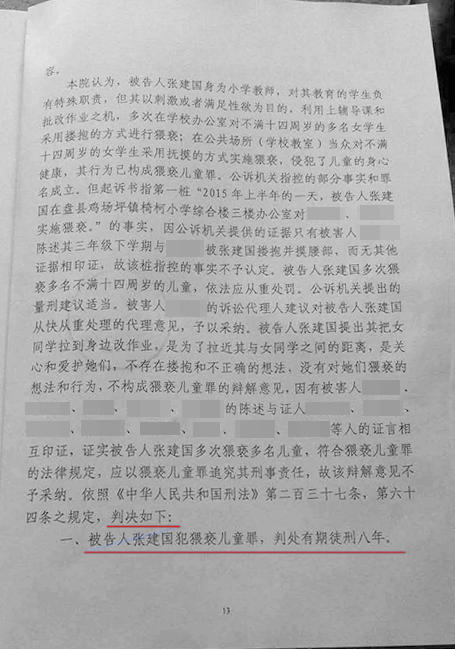 容。
本院认为，被告人张建国身为小学教师，对其教育的学生负
有特殊职责，但其以刺激或者满足性欲为目的。利用上辅导课和
批改作业之机，多次在学校办公室对不满十四周岁的多名女学生
采用搂抱的方式进行猥亵；在公共场所（学校教室）当众对不满
十四周岁的女学生采用抚摸的方式实施猥亵，侵犯了儿童的身心
健康，其行为已构成猥亵儿童罪。公诉机关指控的部分事实和罪
名成立。但起诉书指第一桩“2015年上半年的一天，被告人张建
国在盘县鸡场坪镇椅柯小学综合楼三楼办公室对、
实施猥亵。”的事实，因公诉机关提供的证据只有被害人
陈述其三年级下学期与被张建国搂抱并摸腰部，而无其他
证据相印证，故该桩指控的事实不予认定。被告人张建国多次猥
亵多名不满十四周岁的儿童，依法应从重处罚。公诉机关提出的
量刑建议适当。被害人的诉讼代理人建议对被告人张建国
从快从重处理的代理意见，予以采纳。被告人张建国提出其把女
同学拉到身边改作业，是为了拉近其与女同学之间的距离，是关
心和爱护她们，不存在搂抱和不正确的想法，没有对她们猥亵的
想法和行为，不构成猥亵儿童罪的辩解意见，因有被害人、
、、、的陈述与证人、、
、、、、等人的证言相
互印证，证实被告人张建国多次猥亵多名儿童，符合猥亵儿童罪
的法律规定，应以猥亵儿童罪追究其刑事责任，故该辩解意见不
予采纳。依照《中华人民共和国刑法》第二百三十七条，第六十
四条之规定，判决如下：
一、被告人张建国犯猥亵儿童罪，判处有期徒刑八年。
13